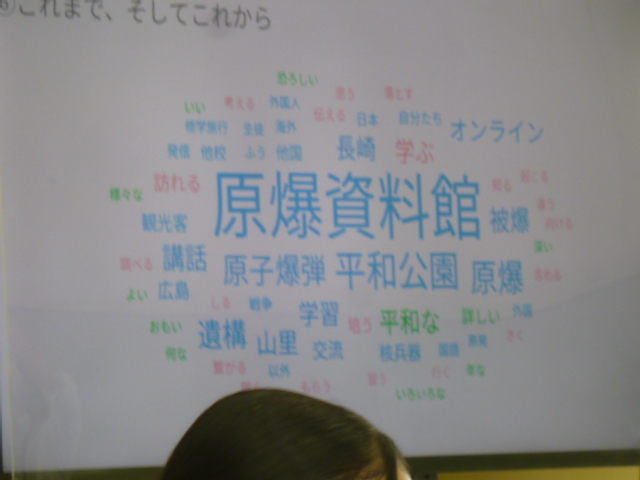 ⑥これまで、そしてこれから
恐ろしい
いい 考える 外国人 思う 落とす
修学旅行 生徒 海外 伝える 日本 自分たち オンライン
発信 他校 ふう 他国 長崎 学ぶ
様々な 訪れる 原爆資料館 知る 起こる
観光客 被爆 違う
調べる 講話 原子爆弾 平和公園 原爆 深い
よい 広島 しる 戦争 学習 平和な 詳しい 外国
おもい 遺構 山里 交流 核兵器
何な 繋がる 以外 行く
もらう 習う いろいろな